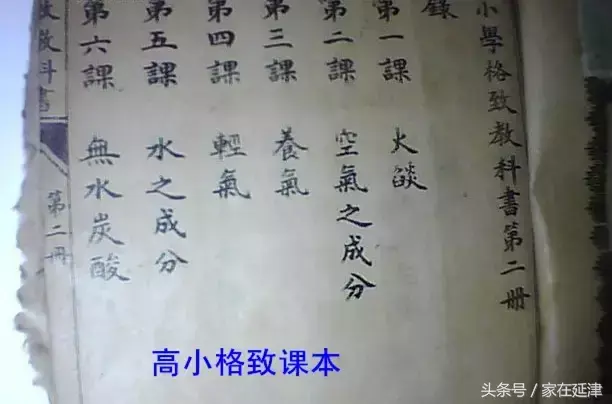 小學格致教科書第二冊
錄
第一課 火燄
第二課 空氣之成分
第三課 養氣
第四課 輕氣
第五課 水之成分
第六課 無水炭酸
教科書
第二冊
高小格致课本
头条号／家在延津